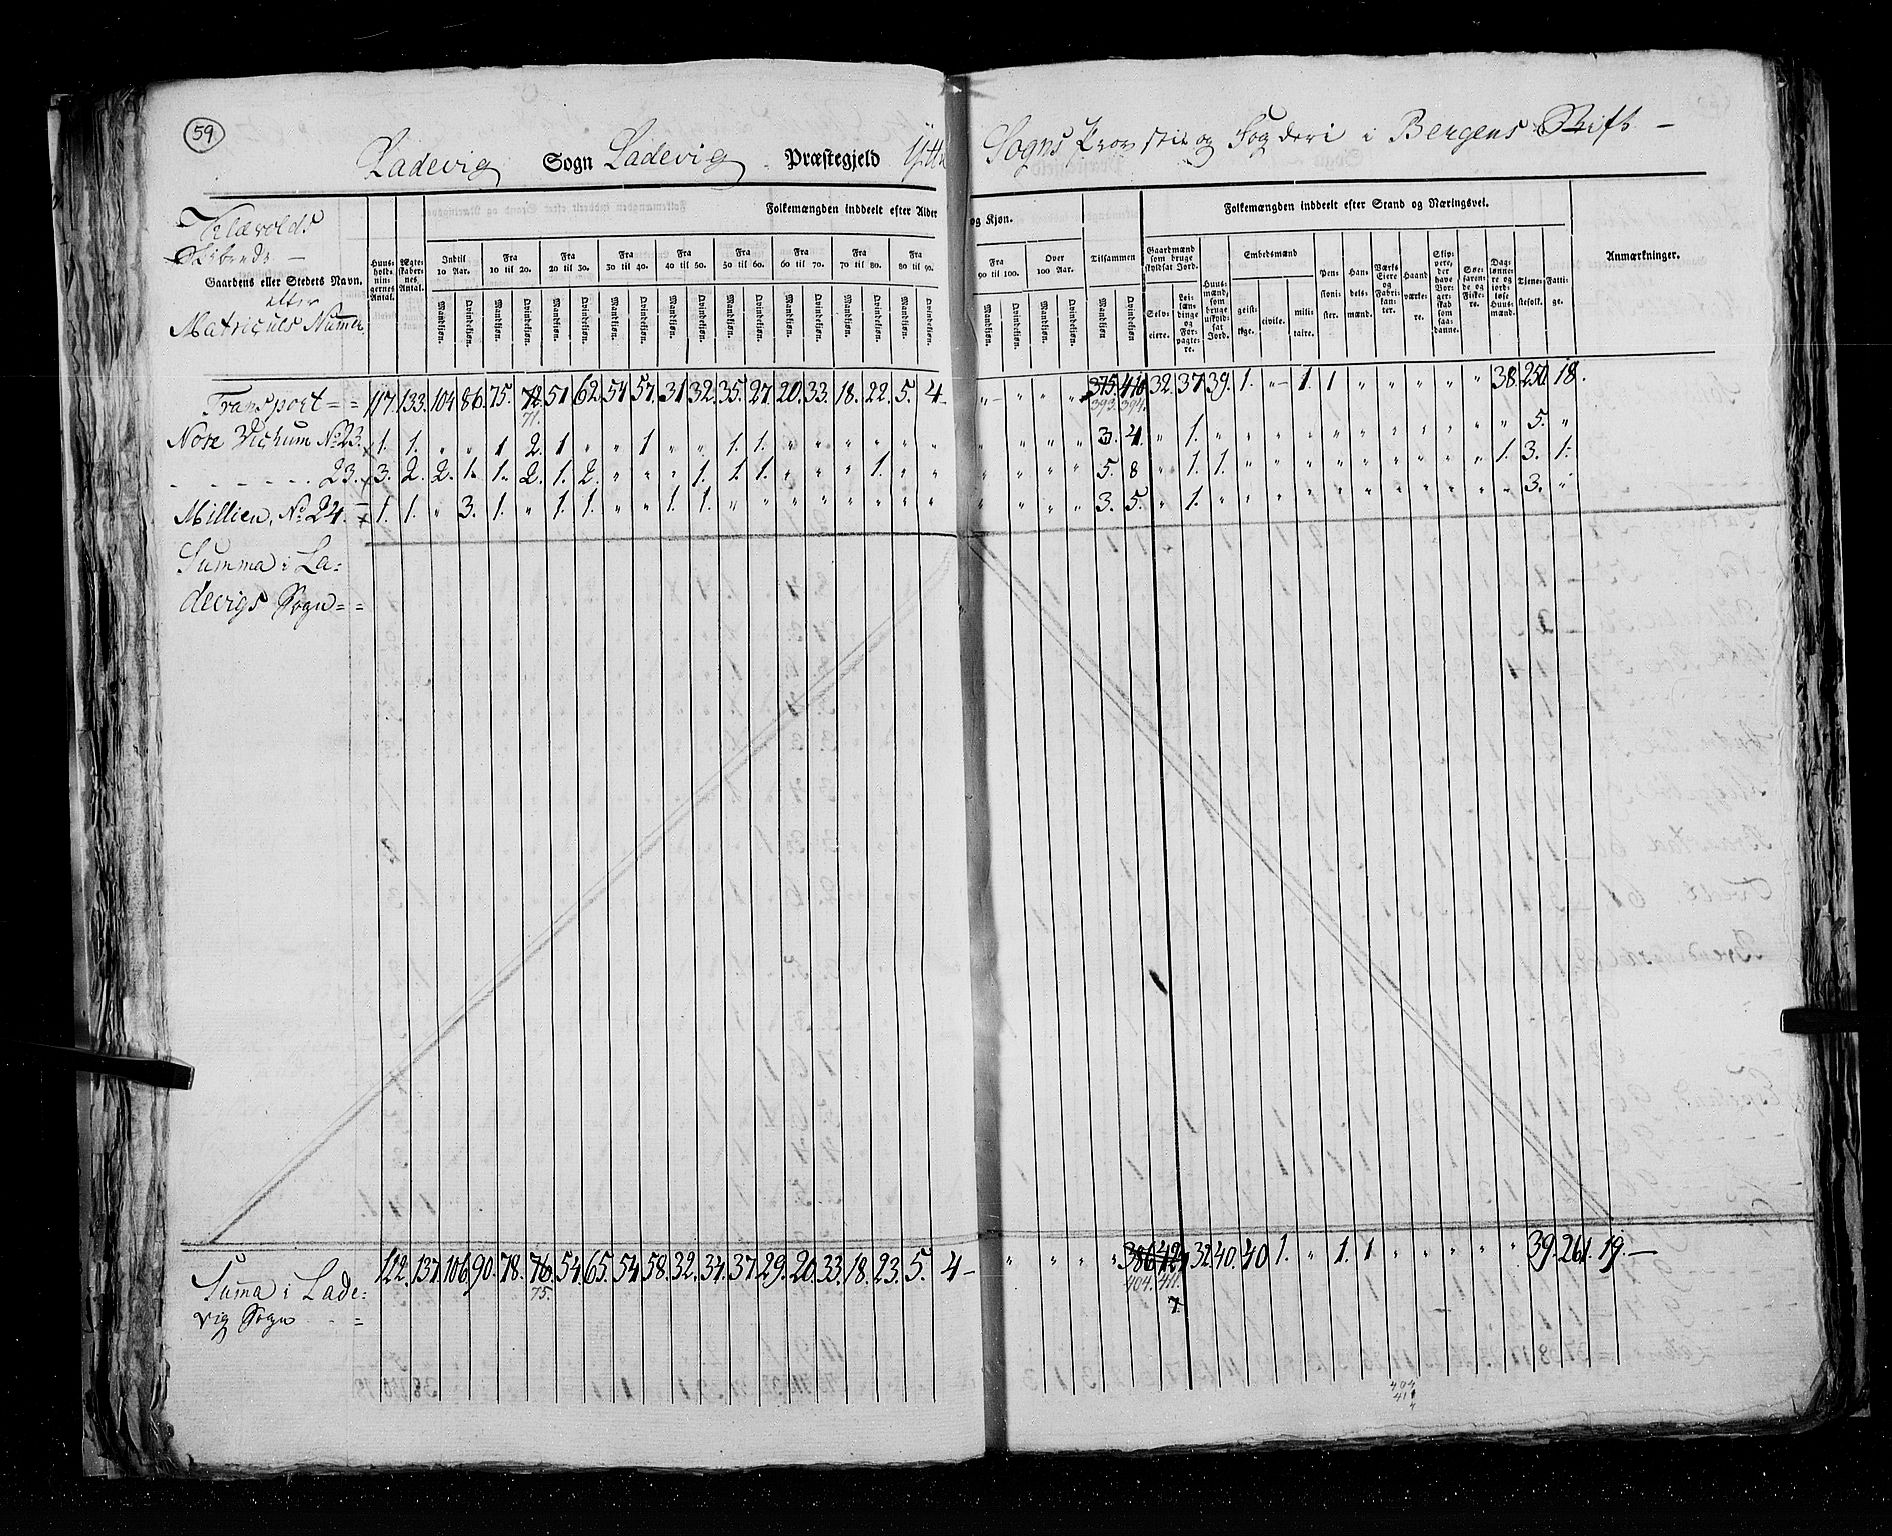 59
Ladevig Sogn Ladevig Præstegjeld Yttre Sogns Provstie og Fogderi i Bergens Stift –
Klævolds
Skibrede –
Gaardens eller Stedets Navn.
efter
Matriculs Numer
Huusholdningernes Antal.
Ægteskabernes Antal.
Folkemængden inddeelt efter Alder og Kjøn.
Indtil 10 Aar.
Fra 10 til 20.
Fra 20 til 30.
Fra 30 til 40.
Fra 40 til 50.
Fra 50 til 60.
Fra 60 til 70.
Fra 70 til 80.
Fra 80 til 90.
Fra 90 til 100.
Over 100 Aar.
Tilsammen
Mandkjøn. Qvindekjøn. Mandkjøn. Qvindekjøn. Mandkjøn. Qvindekjøn. Mandkjøn. Qvindekjøn. Mandkjøn. Qvindekjøn. Mandkjøn. Qvindekjøn. Mandkjøn. Qvindekjøn. Mandkjøn. Qvindekjøn. Mandkjøn. Qvindekjøn. Mandkjøn. Qvindekjøn. Mandkjøn. Qvindekjøn. Mandkjøn. Qvindekjøn.
Folkemængden inddeelt efter Stand og Næringsvei.
Gaardmænd som bruge skyldsat Jord.
Selveiere.
Leilændinge og Forpagtere.
Huusmænd, som bruge uskyldsat Jord.
Embedsmænd
geistlige.
civile.
militaire.
Pensionister.
Handelsmænd.
Værks Eiere og Fabrikanter.
Haandværkere.
Skippere, der have Borgerskab som saadanne.
Søefarende og Fiskere.
Daglønnere og jordløse Huusmænd.
Tjenestefolk.
Fattige.
Anmærkninger.
Transport = = 117. 133. 104. 86. 75. 72. 51. 62. 54. 57. 31. 32. 35. 27. 20. 33. 18. 22. 5. 4 – " – " " " 375. 410 32. 37. 39. 1. " – 1. 1 " " " " " 38. 250. 18.
71. 393. 394.
Nore Vichum No 23. 1. 1. " " 1 2. 1 " " 1. " " 1. 1. " " " " " " " " " " 3. 4. " 1. " " " " " " " " " " " 5. "
- - - - - - 23. 3. 2. 2. 1. 1. 2. 1. 2. " " " 1. 1. 1. " " " 1. " " " " " " 5. 8 " 1. 1. " " " " " " " " " 1. 3. 1.
Millien, No 24. – 1. 1. " 3. 1. " 1. 1. " " 1. 1. " " " " " " " " " " " " 3. 5. " 1. " " " " " " " " " " " 3. "
Summa i La=
devigs Sogn = =
Suma i Lade= 122. 137. 106. 90. 78. 76. 54. 65. 54. 58. 32. 34. 37. 29. 20. 33. 18. 23. 5. 4 – " " " " 386. 424 32. 40. 40 1. " 1. 1 " " " " " 39. 261. 19. –
75. 404. 411.
vig Sogn - - =
7.
404
411